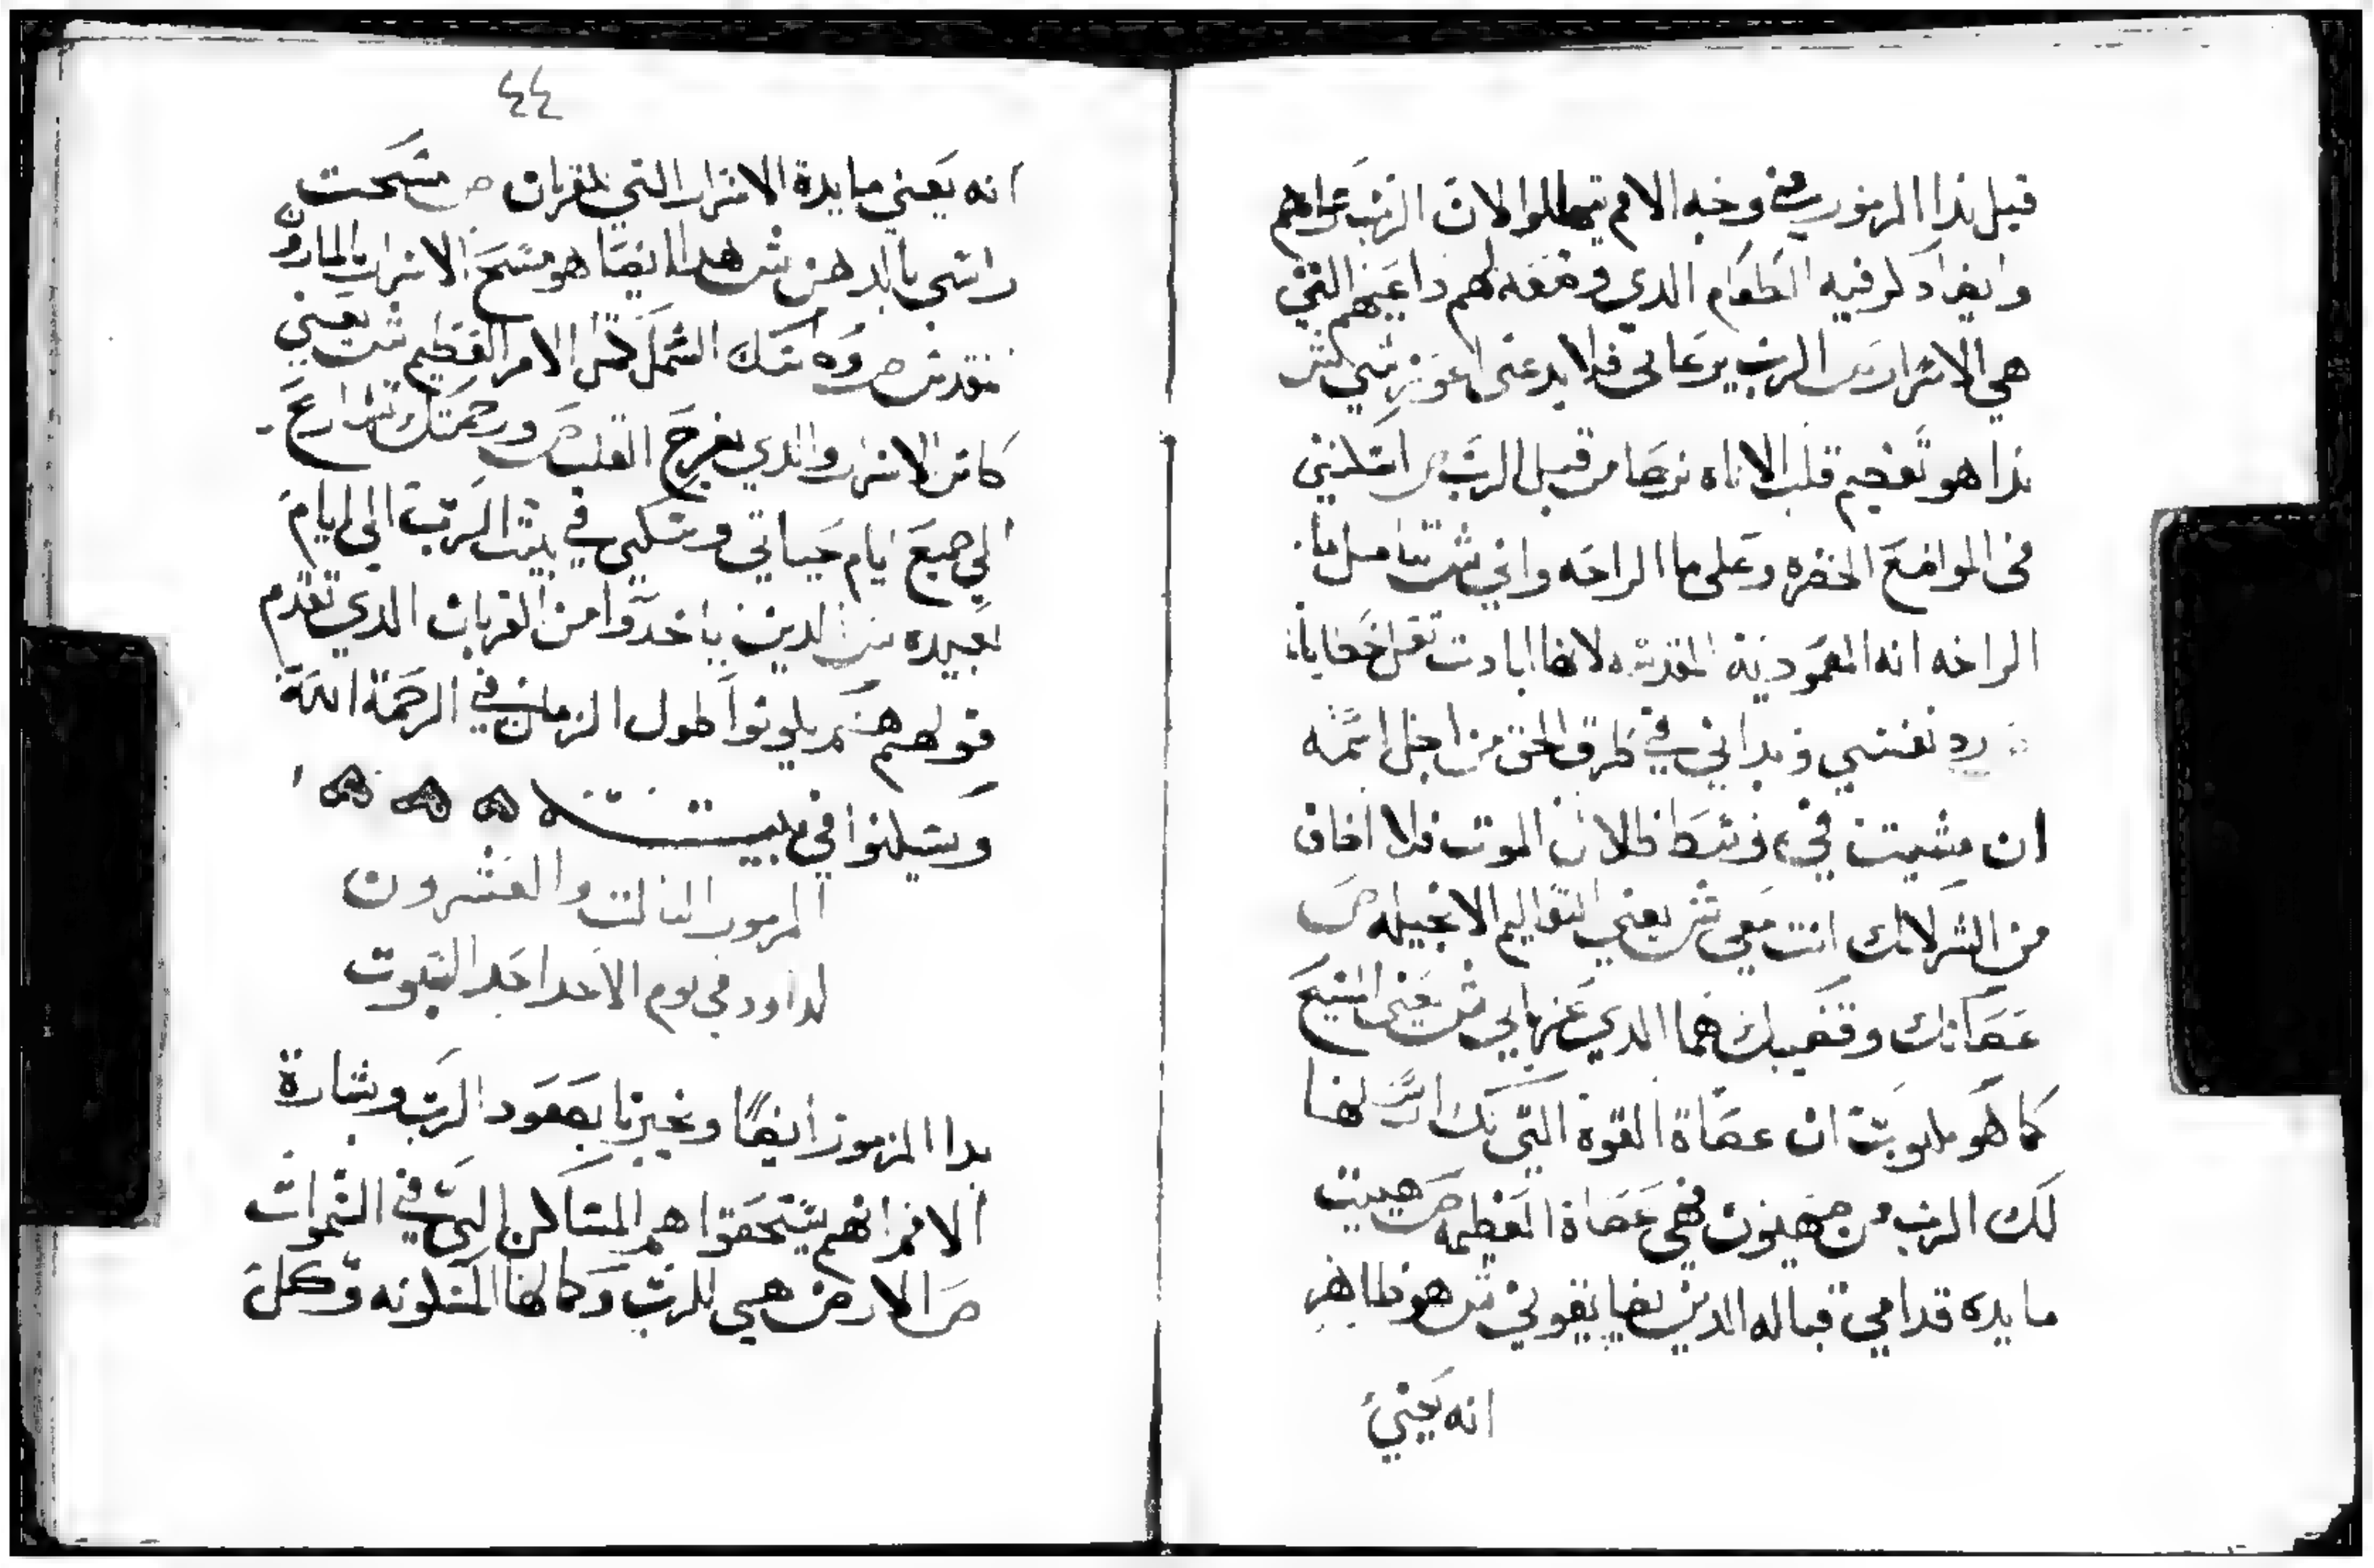 قيل هذا المزمور في وجه الامم تهللوا لان الرب عزاهم
وايضا ذكر فيه الطعام الدي وضعه لهم راعيهم التي
هي الاسرار ص الرب يرعاني فلا يدعني اعوز شي ش
هذا هو تفضيم قلب الاناه نوحا من قبل الرب ص اسكنني
في المواضع الخضره وعلى ما الراحه رباني ش تامل ما
الراحه انه المعموديه المقدسه لانها ابادت ثقل خطايانا
رد نفسي وهداني في طرق الحق من اجل اسمه
ان مشيت في وسط ظلال الموت فلا اخاف
من الشر لانك انت معي ش يعني التعاليم الانجيليه ص
عصاتك وقضيبك هما الدي عزياني ش يعني المسيح
كما هو مكتوب ان عصاة القوة التي لك ارسلها
لك الرب من صهيون فهي عصاة العظيمه ص هييت
مايده قدامي قباله الدين يضايقوني ش هو ظاهر
انه يعني
٤٤
انه يعني مايدة الاسرار التي للقربان ص مسحت
راسي بالدهن ش هدا ايضا هو مسح الاسراب بالمارون
مقدس ص وكاسك اسكرتني الامر العظيم ش يعني
كاس الاسرار والدي يفرح القلب ص ورحمتك تسارع
الي جميع ايام حياتي وسكني في بيت الرب الى ايام
بعيده ش الدين ياخدوا من القربان الدي تقدم
قولهم هم يكونوا طول الزمان في الرحمة الله
ويسكنوا في بيته ه ه ه
المزمور التالت والعشرون
لداود في يوم الاحد احد السبوت
هدا المزمور ايضا ويخبرنا بصعود الرب وبشارة
الامم انهم يستحقوا هم المساكن التي في السموات
ص الارض هي للرب وكمالها المسكونه وكل